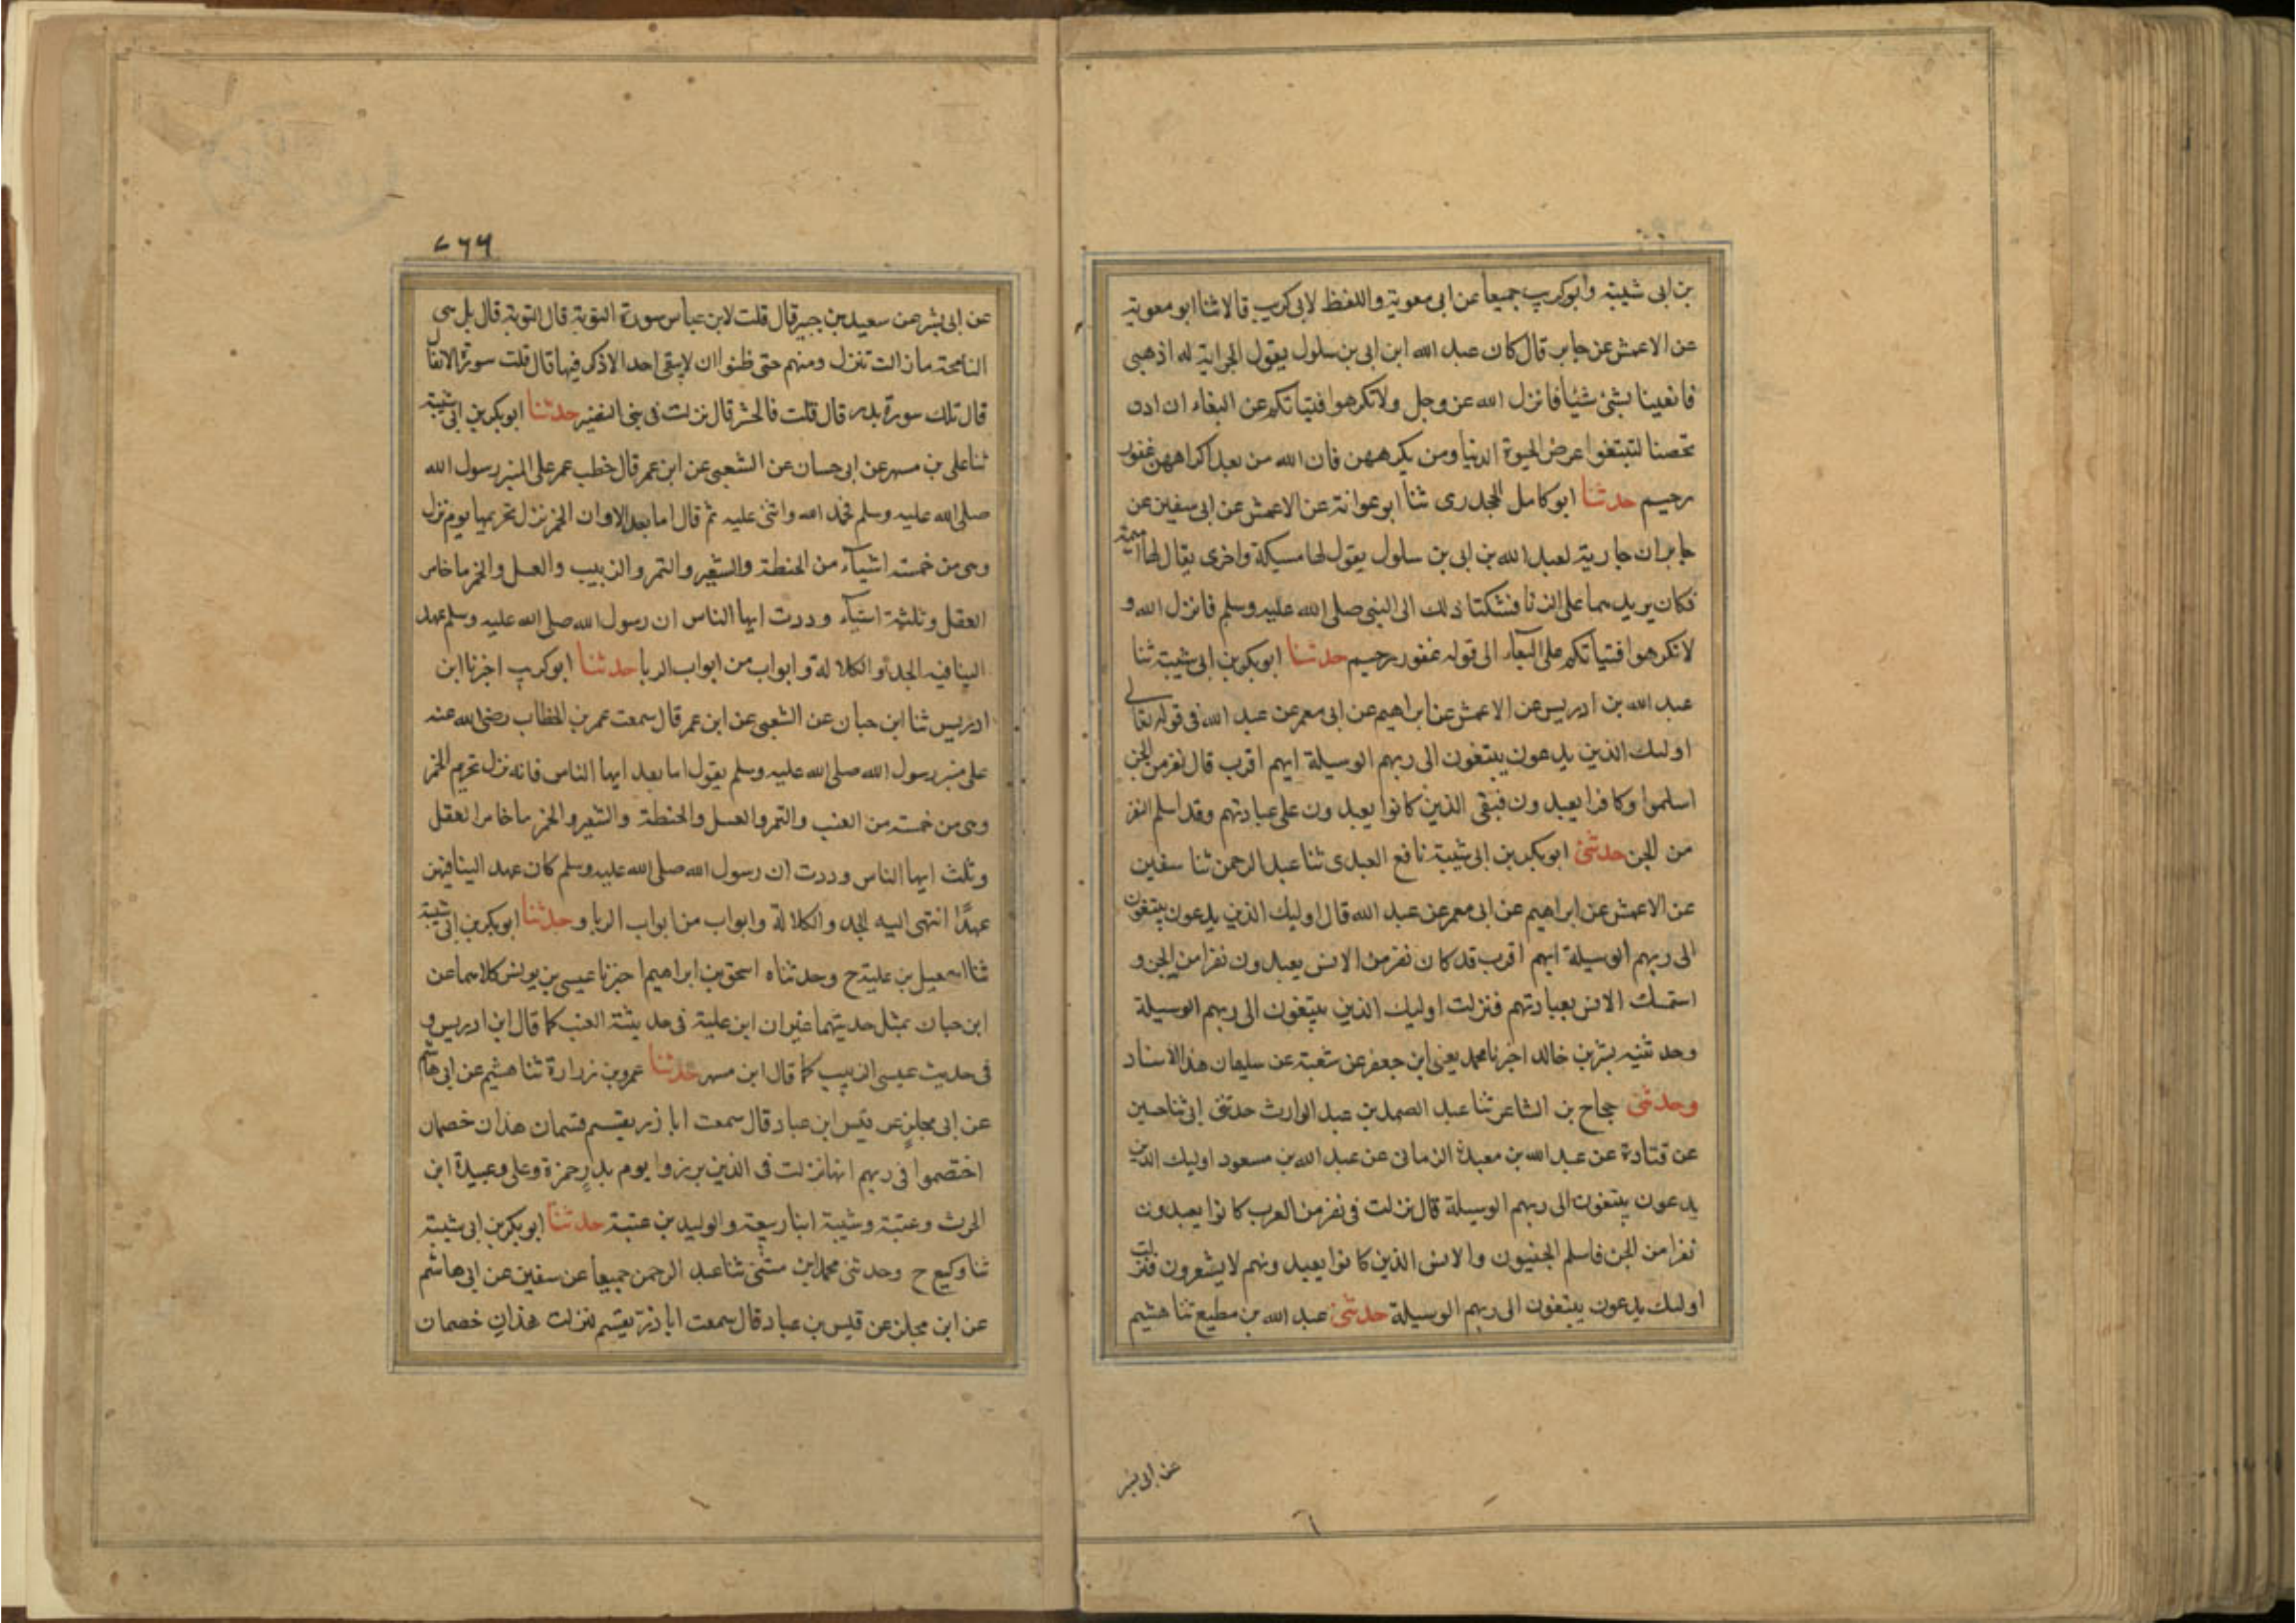 بن ابى شيبة وابو كريب جميعا عن ابى معوية واللفظ لابى كريب قالا ثنا ابو معوية
عن الاعمش عن جابر قال كان عبد الله ابن ابى بن سلول يقول لجراية له اذهبى
فانعينا بشئ شئيا فانزل الله عز وجل ولا تكرهوا فتياتكم عن البغاء ان اردن
تحصنا لتبتغوا عرض الحيوة الدنيا ومن يكرههن فان الله من بعد اكراههن غفور
رحيم حدثنا ابو كامل الجحدرى ثنا ابو عوانة عن الاعمش عن ابى سفين عن
جابر ان جارية لعبد الله بن ابى بن سلول يقول لها مسيكة واخرى يقال لها اميمة
فكان يريدهما على الزنا فشكتا ذلك الى النبى صلى الله عليه وسلم فانزل الله و
لا تكرهوا فتياتكم على البغآء الى قوله غفور رحيم حدثنا ابو بكر بن ابى شيبة ثنا
عبد الله بن ادريس عن الاعمش عن ابراهيم عن ابى معمر عن عبد الله فى قوله تعالى
اوليك الذين يدعون يبتغون الى ربهم الوسيلة ايهم اقرب قال نفر من الجن
اسلموا وكانوا يعبدون فبقى الذين كانوا يعبدون على عبادتهم وقد اسلم النفر
من الجن حدثنى ابو بكر بن ابى شيبة نافع العبدى ثنا عبد الرحمن ثنا سفين
عن الاعمش عن ابراهيم عن ابى معمر عن عبد الله قال اوليك الذين يدعون يبتغون
الى ربهم الوسيلة ايهم اقرب قد كان نفر من الانس يعبدون نفرا من الجن و
استمسك الانس بعبادتهم فنزلت اوليك الذين يبتغون الى ربهم الوسيلة
وحدثنيه بشر بن خالد اخبرنا محمد يعنى ابن جعفر عن شعبة عن سليمان هذا الاسناد
وحدثنى حجاج بن الشاعر ثنا عبد الصمد بن عبد الوارث حدثنى ابى ثنا حسين
عن قتادة عن عبد الله بن معبد الزمانى عن عبد الله بن مسعود اوليك الذين
يدعون يبتغون الى ربهم الوسيلة قال نزلت فى نفر من العرب كانوا يعبدون
نفرا من الجن فاسلم الجنيون والانس الذين كانوا يعبدونهم لا يشعرون فنزلت
اوليك يدعون يبتغون الى ربهم الوسيلة حدثنى عبد الله بن مطيع ثنا هشيم
عن ابى بشر
٧٦٦
عن ابى بشر عن سعيد بن جبير قال قلت لابن عباس سورة التوبة قال التوبة قال بل هى
الفاضحة ما زالت تنزل ومنهم حتى ظنوا ان لا يبقى احد الا ذكر فيها قال قلت سورة الانفال
قال تلك سورة بدر قال قلت فالحشر قال نزلت فى بنى النضير حدثنا ابو بكر بن ابى شيبة
ثنا على بن مسهر عن ابى حسان عن الشعبى عن ابن عمر قال خطب عمر على المنبر رسول الله
صلى الله عليه وسلم فحمد الله واثنى عليه ثم قال اما بعد الا وان الخمر نزل تحريمها يوم نزل
وهى من خمسة اشيآء من الحنطة والشعير والتمر والزبيب والعسل والخمر ما خامر
العقل وثلثة اشيآء وددت ايها الناس ان رسول الله صلى الله عليه وسلم عهد
الينا فيه الجد والكلالة وابواب من ابواب الربا حدثنا ابو كريب اخبرنا ابن
ادريس ثنا ابن حبان عن الشعبى عن ابن عمر قال سمعت عمر بن الخطاب رضى الله عنه
على منبر رسول الله صلى الله عليه وسلم يقول اما بعد ايها الناس فانه نزل تحريم الخمر
وهى من خمسة من العنب والتمر والعسل والحنطة والشعير والخمر ما خامر العقل
وثلث ايها الناس وددت ان رسول الله صلى الله عليه وسلم كان عهد الينا فيهن
عهدًا انتهى اليه الجد والكلالة وابواب من ابواب الربا و حدثنا ابو بكر بن ابى شيبة
ثنا اسمعيل بن علية ح وحدثناه اسحق بن ابراهيم اخبرنا عيسى بن يونس كلاهما عن
ابن حبان بمثل حديثهما غير ان ابن علية فى حديثة العنب كما قال ابن ادريس و
فى حديث عيسى الزبيب كما قال ابن مسهر حدثنا عمرو بن زرارة ثنا هشيم عن ابى هاشم
عن ابى مجلز عن قيس ابن عباد قال سمعت ابا ذر يقسم قسمان هذان خصمان
اختصموا فى ربهم انها نزلت فى الذين برزوا يوم بدر حمزة وعلى وعبيدة ابن
الحرث وعتبة وشيبة ابنا ربيعة والوليد بن عتبة حدثنا ابو بكر بن ابى شيبة
ثنا وكيع ح وحدثنى محمد ابن مثنى ثنا عبد الرحمن جميعا عن سفين عن ابى هاشم
عن ابن مجلز عن قيس بن عباد قال سمعت ابا ذر يقسم لنزلت هذان خصمان